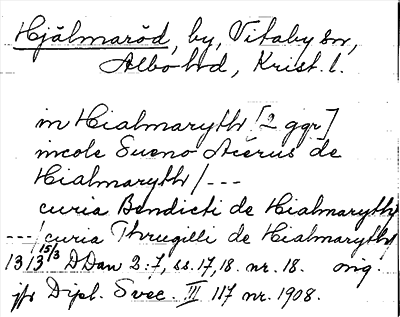 Hjälmaröd, by, Vitaby sn,
Albo hd, Krist. l.
in Hialmaryth [2 ggr]
incole Sueno Acerus de
Hialmaryth / ---
curia Bendicti de Hialmaryth
--- / curia Thrugilli de Hialmaryth /
1313 15/3 DDan 2:7, ss. 17, 18. nr. 18. orig.
jfr Dipl. Svec. III 117 nr. 1908.